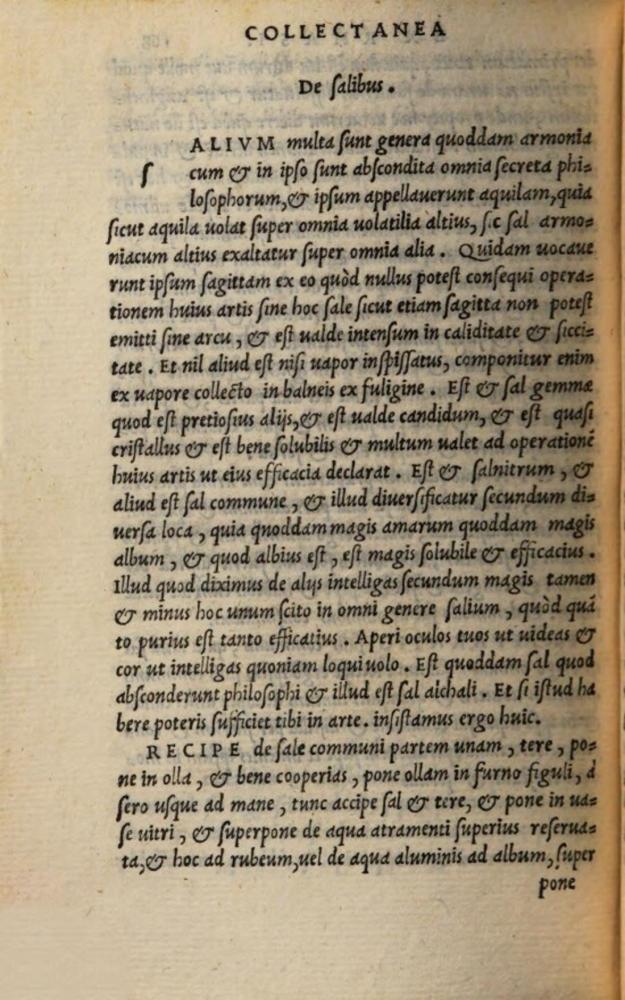 COLLECTANEA
De ſalibus.
ALIVM multa ſunt genera quoddam armonia
ſ cum & in ipſo ſunt abſcondita omnia ſecreta phi=
loſophorum,& ipſum appellauerunt aquilam,quia
ſicut aquila uolat ſuper omnia uolatilia altius, ſic ſal armo=
niacum altius exaltatur ſuper omnia alia. Quidam uocaue
runt ipſum ſagittam ex eo quòd nullus poteſt conſequi opera=
tionem huius artis ſine hoc ſale ſicut etiam ſagitta non poteſt
emitti ſine arcu, & eſt ualde intenſum in caliditate & ſicci=
tate. Et nil aliud eſt niſi uapor inſpiſſatus, componitur enim
ex uapore collecto in balneis ex fuligine. Eſt & ſal gemmæ
quod eſt pretioſius alijs,& eſt ualde candidum, & eſt quaſi
criſtallus & eſt bene ſolubilis & multum ualet ad operationē
huius artis ut eius efficacia declarat. Eſt & ſalnitrum, &
aliud eſt ſal commune, & illud diuerſificatur ſecundum di=
uerſa loca, quia quoddam magis amarum quoddam magis
album, & quod albius eſt, eſt magis ſolubile & efficacius.
Illud quod diximus de alijs intelligas ſecundum magis tamen
& minus hoc unum ſcito in omni genere ſalium, quòd quā
to purius eſt tanto efficatius. Aperi oculos tuos ut uideas &
cor ut intelligas quoniam loqui uolo. Eſt quoddam ſal quod
abſconderunt philoſophi & illud eſt ſal alchali. Et ſi iſtud ha
bere poteris ſufficiet tibi in arte. inſiſtamus ergo huic.
RECIPE de ſale communi partem unam, tere, po=
ne in olla, & bene cooperias, pone ollam in furno figuli, à
ſero uſque ad mane, tunc accipe ſal & tere, & pone in ua=
ſe uitri, & ſuperpone de aqua atramenti ſuperius reſerua=
ta,& hoc ad rubeum,uel de aqua aluminis ad album, ſuper
pone